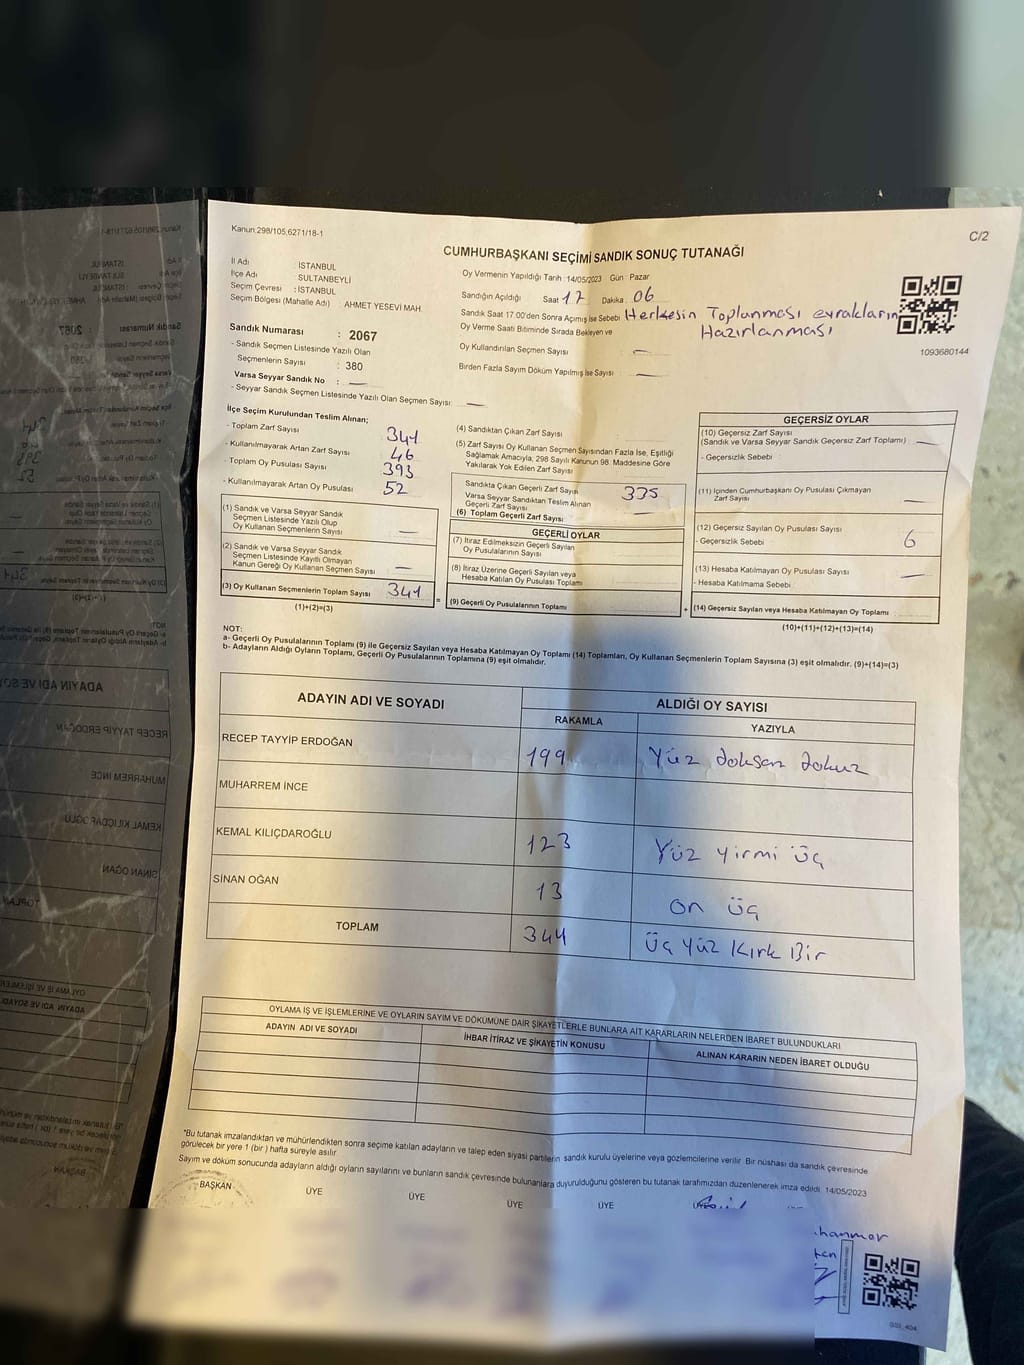 Kanun.298/105,6271/18-1
C/2
CUMHURBAŞKANI SEÇİMİ SANDIK SONUÇ TUTANAĞI
İl Adı İSTANBUL
İlçe Adı SULTANBEYLİ
Seçim Çevresi : İSTANBUL
Seçim Bölgesi (Mahalle Adı) AHMET YESEVİ MAH
Oy Vermenin Yapıldığı Tarih : 14/05/2023 Gün : Pazar
Sandığın Açıldığı Saat 17 Dakika : 06
Sandık Saat 17.00'den Sonra Açılmış İse Sebebi Herkesin Toplanması evrakların
Hazırlanması
Oy Verme Saati Bitiminde Sırada Bekleyen ve
Oy Kullandırılan Seçmen Sayısı : —
Birden Fazla Sayım Döküm Yapılmış İse Sayısı : —
1093680144
Sandık Numarası : 2067
- Sandık Seçmen Listesinde Yazılı Olan
Seçmenlerin Sayısı : 380
Varsa Seyyar Sandık No : —
- Seyyar Sandık Seçmen Listesinde Yazılı Olan Seçmen Sayısı: —
İlçe Seçim Kurulundan Teslim Alınan;
- Toplam Zarf Sayısı
- Kullanılmayarak Artan Zarf Sayısı 46
- Toplam Oy Pusulası Sayısı 393
- Kullanılmayarak Artan Oy Pusulası 52
(1) Sandık ve Varsa Seyyar Sandık
Seçmen Listesinde Yazılı Olup
Oy Kullanan Seçmenlerin Sayısı —
(2) Sandık ve Varsa Seyyar Sandık
Seçmen Listesinde Kayıtlı Olmayan
Kanun Gereği Oy Kullanan Seçmen Sayısı —
(3) Oy Kullanan Seçmenlerin Toplam Sayısı 341
(1)+(2)=(3)
=
(4) Sandıktan Çıkan Zarf Sayısı
(5) Zarf Sayısı Oy Kullanan Seçmen Sayısından Fazla İse, Eşitliği
Sağlamak Amacıyla, 298 Sayılı Kanunun 98. Maddesine Göre
Yakılarak Yok Edilen Zarf Sayısı
Sandıkta Çıkan Geçerli Zarf Sayısı 335
Varsa Seyyar Sandıktan Teslim Alınan
Geçerli Zarf Sayısı —
(6) Toplam Geçerli Zarf Sayısı
GEÇERLİ OYLAR
(7) İtiraz Edilmeksizin Geçerli Sayılan
Oy Pusulalarının Sayısı
(8) İtiraz Üzerine Geçerli Sayılan veya
Hesaba Katılan Oy Pusulası Toplamı
(9) Geçerli Oy Pusulalarının Toplamı
+
GEÇERSİZ OYLAR
(10) Geçersiz Zarf Sayısı
(Sandık ve Varsa Seyyar Sandık Geçersiz Zarf Toplamı) —
- Geçersizlik Sebebi :
(11) İçinden Cumhurbaşkanı Oy Pusulası Çıkmayan
Zarf Sayısı —
(12) Geçersiz Sayılan Oy Pusulası Sayısı 6
- Geçersizlik Sebebi :
(13) Hesaba Katılmayan Oy Pusulası Sayısı —
- Hesaba Katılmama Sebebi :
(14) Geçersiz Sayılan veya Hesaba Katılmayan Oy Toplamı
(10)+(11)+(12)+(13)=(14)
NOT:
a- Geçerli Oy Pusulalarının Toplamı (9) ile Geçersiz Sayılan veya Hesaba Katılmayan Oy Toplamı (14) Toplamları, Oy Kullanan Seçmenlerin Toplam Sayısına (3) eşit olmalıdır. (9)+(14)=(3)
b- Adayların Aldığı Oyların Toplamı, Geçerli Oy Pusulalarının Toplamına (9) eşit olmalıdır.
ADAYIN ADI VE SOYADI ALDIĞI OY SAYISI
RAKAMLA YAZIYLA
RECEP TAYYİP ERDOĞAN 199 Yüz doksan dokuz
MUHARREM İNCE
KEMAL KILIÇDAROĞLU 123 Yüz yirmi üç
SİNAN OĞAN 13 on üç
TOPLAM Üç yüz Kırk Bir
OYLAMA İŞ VE İŞLEMLERİNE VE OYLARIN SAYIM VE DÖKÜMÜNE DAİR ŞİKAYETLERLE BUNLARA AİT KARARLARIN NELERDEN İBARET BULUNDUKLARI
ADAYIN ADI VE SOYADI İHBAR İTİRAZ VE ŞİKAYETİN KONUSU ALINAN KARARIN NEDEN İBARET OLDUĞU
"Bu tutanak imzalandıktan ve mühürlendikten sonra seçime katılan adayların ve talep eden siyasi partilerin sandık kurulu üyelerine veya gözlemcilerine verilir. Bir nüshası da sandık çevresinde
görülecek bir yere 1 (bir) hafta süreyle asılır
Sayım ve döküm sonucunda adayların aldığı oyların sayılarını ve bunların sandık çevresinde bulunanlara duyurulduğunu gösteren bu tutanak tarafımızdan düzenlenerek imza edildi. 14/05/2023
BAŞKAN ÜYE ÜYE ÜYE ÜYE